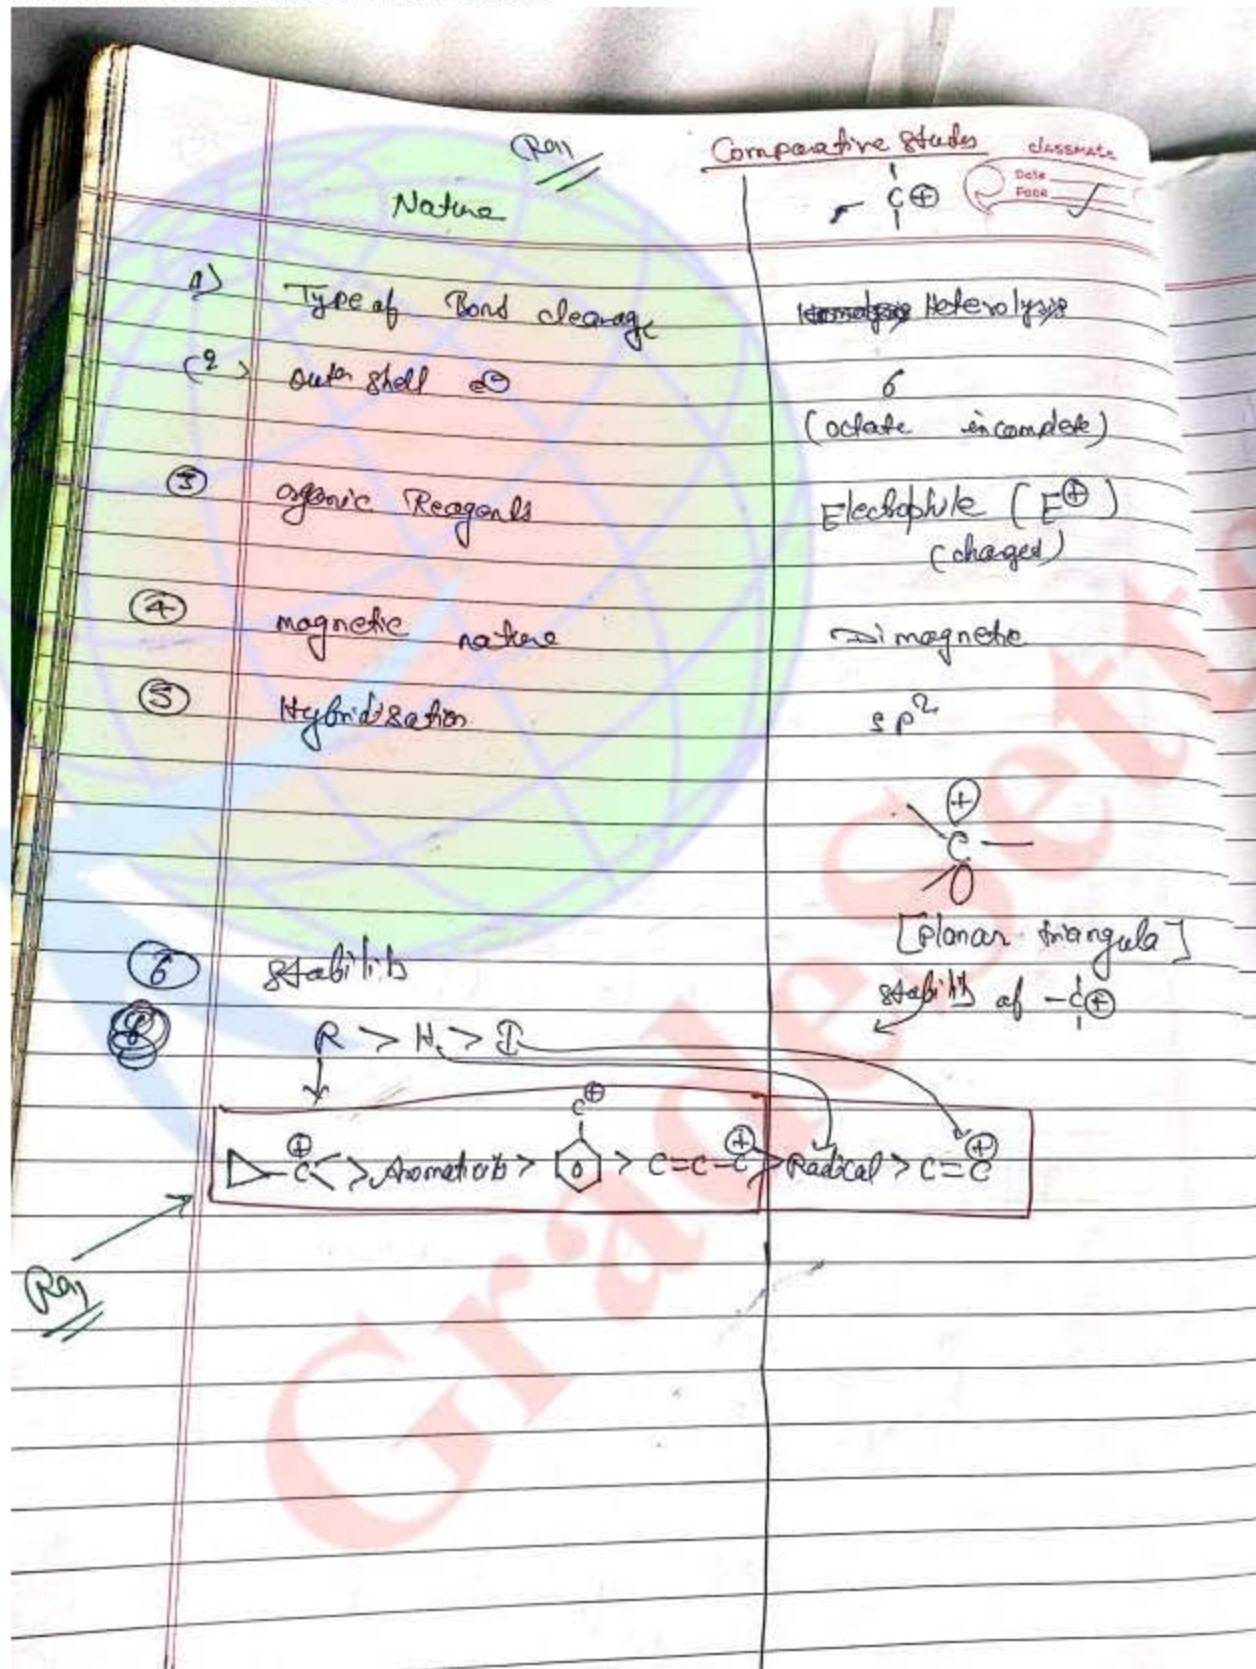 Comparative Studes
classmate
Date
Page
Nature
C⊕
1) Type of Bond cleavage
Heterolysis
(2) outer shell e⊖
6
(octate incomplete)
③ organic Reagents
Electrophile (E⊕)
(charged)
④ magnetic nature
Dimagnetic
⑤ Hybridisation
sp²
⊕
C
[Planar triangula]
⑥ stability
stability of -C⊕
R > H > I
C⊕ > Aromaticity > C⊕ > C=C-C⊕ > Radical > C=C⊕
GradeSett